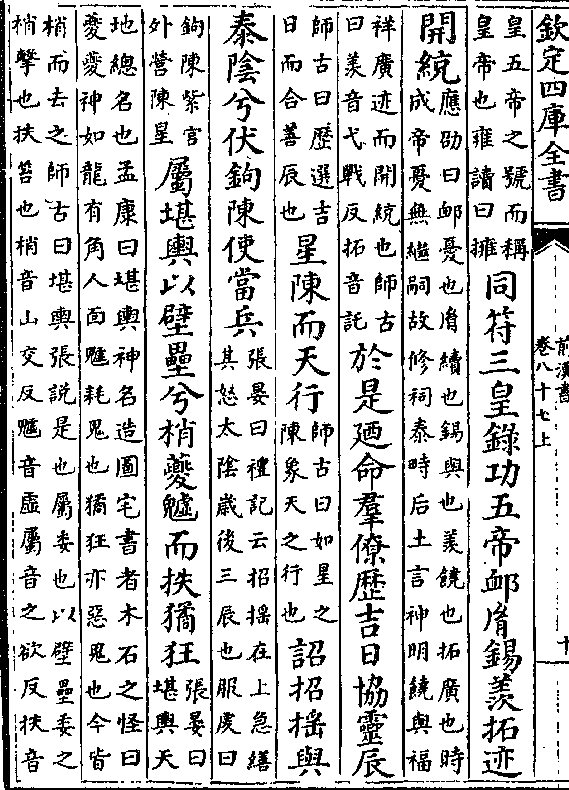 欽定四庫全書
前漢書
卷八十七上
十
皇五帝之號而稱
皇帝也雍讀曰擁
同符三皇錄功五帝卹𦙍錫羨拓迹
開統
應劭曰卹憂也𦙍續也錫與也羨饒也拓廣也時
成帝憂無繼嗣故修祠泰畤后土言神明饒與福
祥廣迹而開統也師古
曰羨音弋戰反拓音託
於是廼命羣僚歷吉日協靈辰
師古曰歷選吉
日而合善辰也
星陳而天行
師古曰如星之
陳象天之行也
詔招搖與
泰陰兮伏鉤陳使當兵
張晏曰禮記云招搖在上急繕
其怒太陰歲後三辰也服虔曰
鉤陳紫宮
外營陳星
屬堪輿以壁壘兮梢夔魖而扶獝狂
張晏曰
堪輿天
地總名也孟康曰堪輿神名造圖宅書者木石之怪曰
夔夔神如龍有角人面魖耗鬼也獝狂亦惡鬼也今皆
梢而去之師古曰堪輿張說是也屬委也以壁壘委之
梢擊也扶笞也梢音山交反魖音虛屬音之欲反扶音